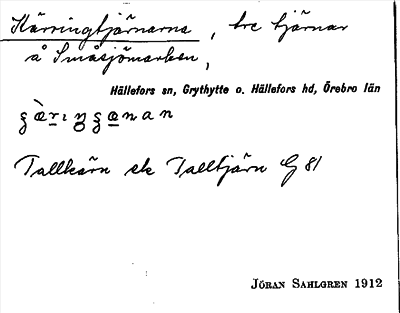 Kärringtjärnarna, tre tjärnar
å Småsjömarken,
Hällefors sn, Grythytte o. Hällefors hd, Örebro län
Tallkärn elr Talltjärn G 81
JÖRAN SAHLGREN 1912